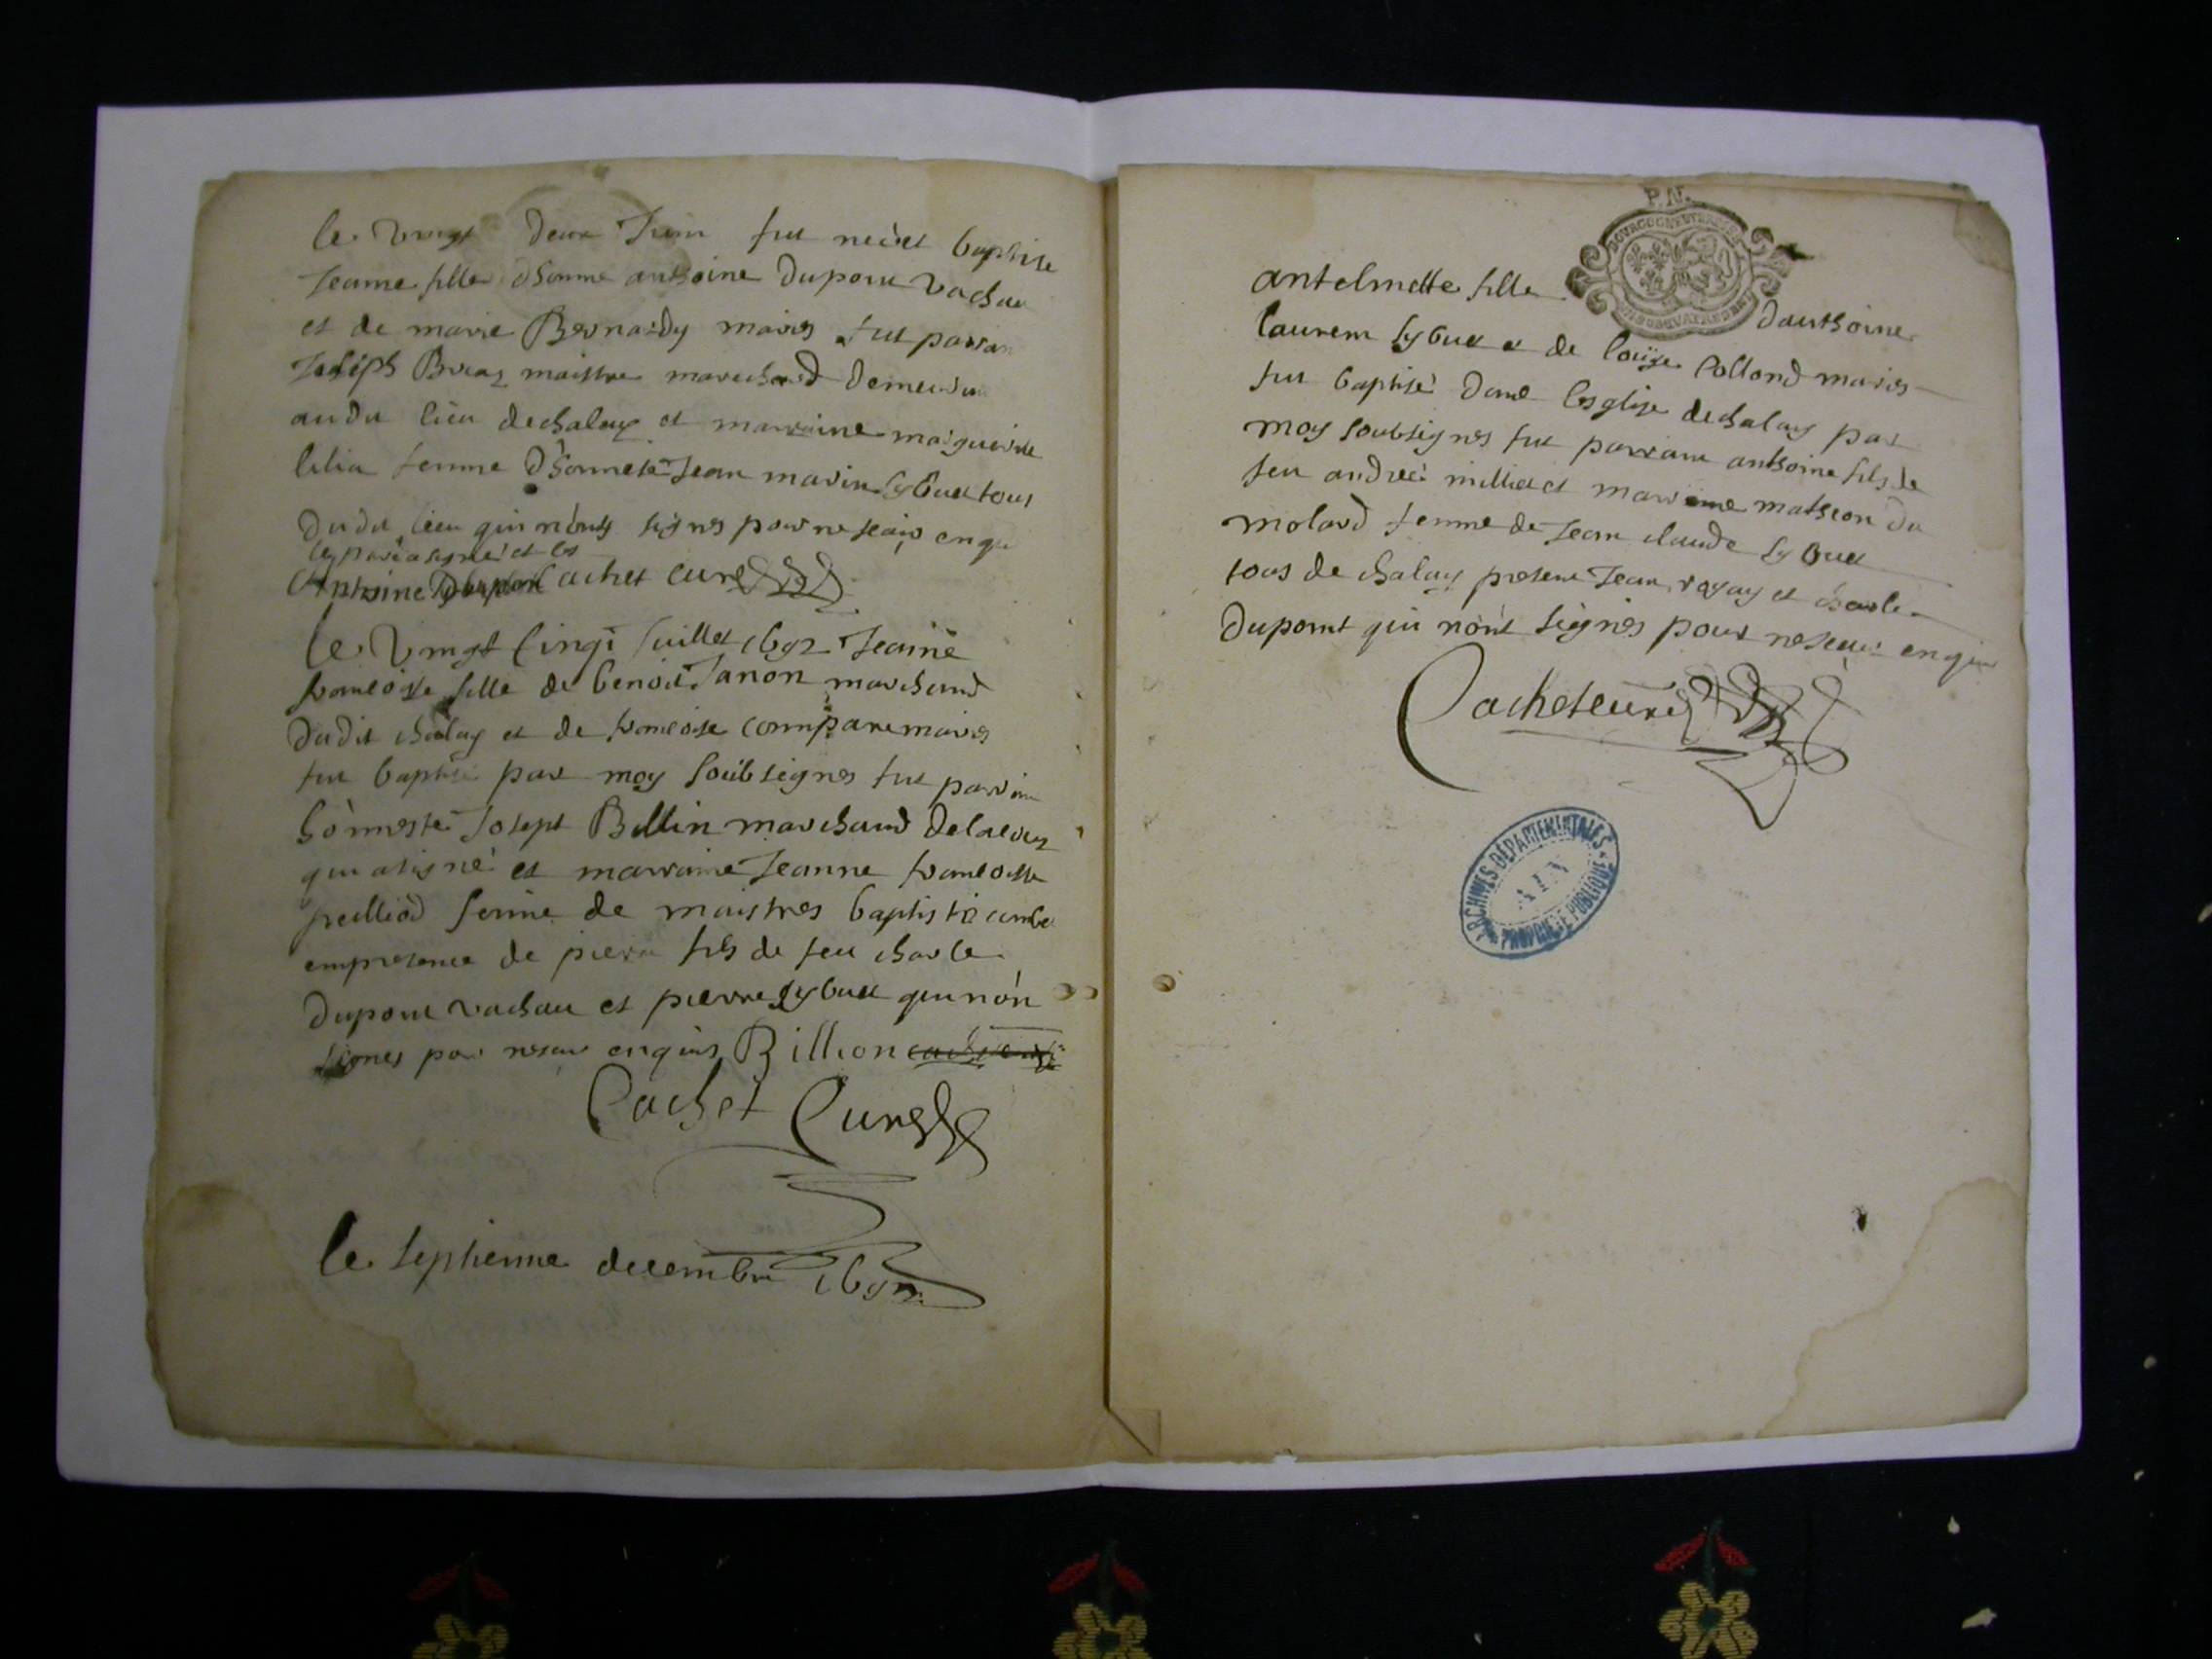 le vingt deux Juin fut née et baptise
Jeanne fille dhonne anthoine Dupont vachat
et de marie Bernardy mariés fut parrain
Joseph Bvaz maistre marechard demeurant
audit lieu dechaley et marraine marguerite
lilia femme dhonneste Jean marin lybuet tous
dudit lieu qui nont signes pour ne scavoir enquis
le pere a signé et les
Anthoine Dupont Cachet curé
Le vingt cinq Juillet 1692 Jeanne
francoise fille de benoit Janon marchand
dudit chaley et de francoise compare mariés
fut baptisé par moy soubsignes fut parrain
honneste Josept Billin marchand
qui a signé et marraine Jeanne francoise
femme de maistres baptiste
empresence de piere fils de feu charle
Dupont vachat et pierre lybuet qui nón
signes pour ne scavoir enquis Billion
Cachet Curé
le septiesme decembre 1692
P. NF.
antelmette fille danthoine
laurent lybuet et de loüise Collond mariés
fut baptisé dans lesglise dechaley par
moy soubsignes fut parrain anthoine fils de
feu andrée milliet et marraine matheon du
molard femme de Jean claude lybuet
tous de chaley presens Jean royay et charle
Dupomt qui nónt signés pour ne scavoir enquis
Cachet curé
ARCHIVES DÉPARTEMENTALES
AIN
PROPRIÉTÉ PUBLIQUE